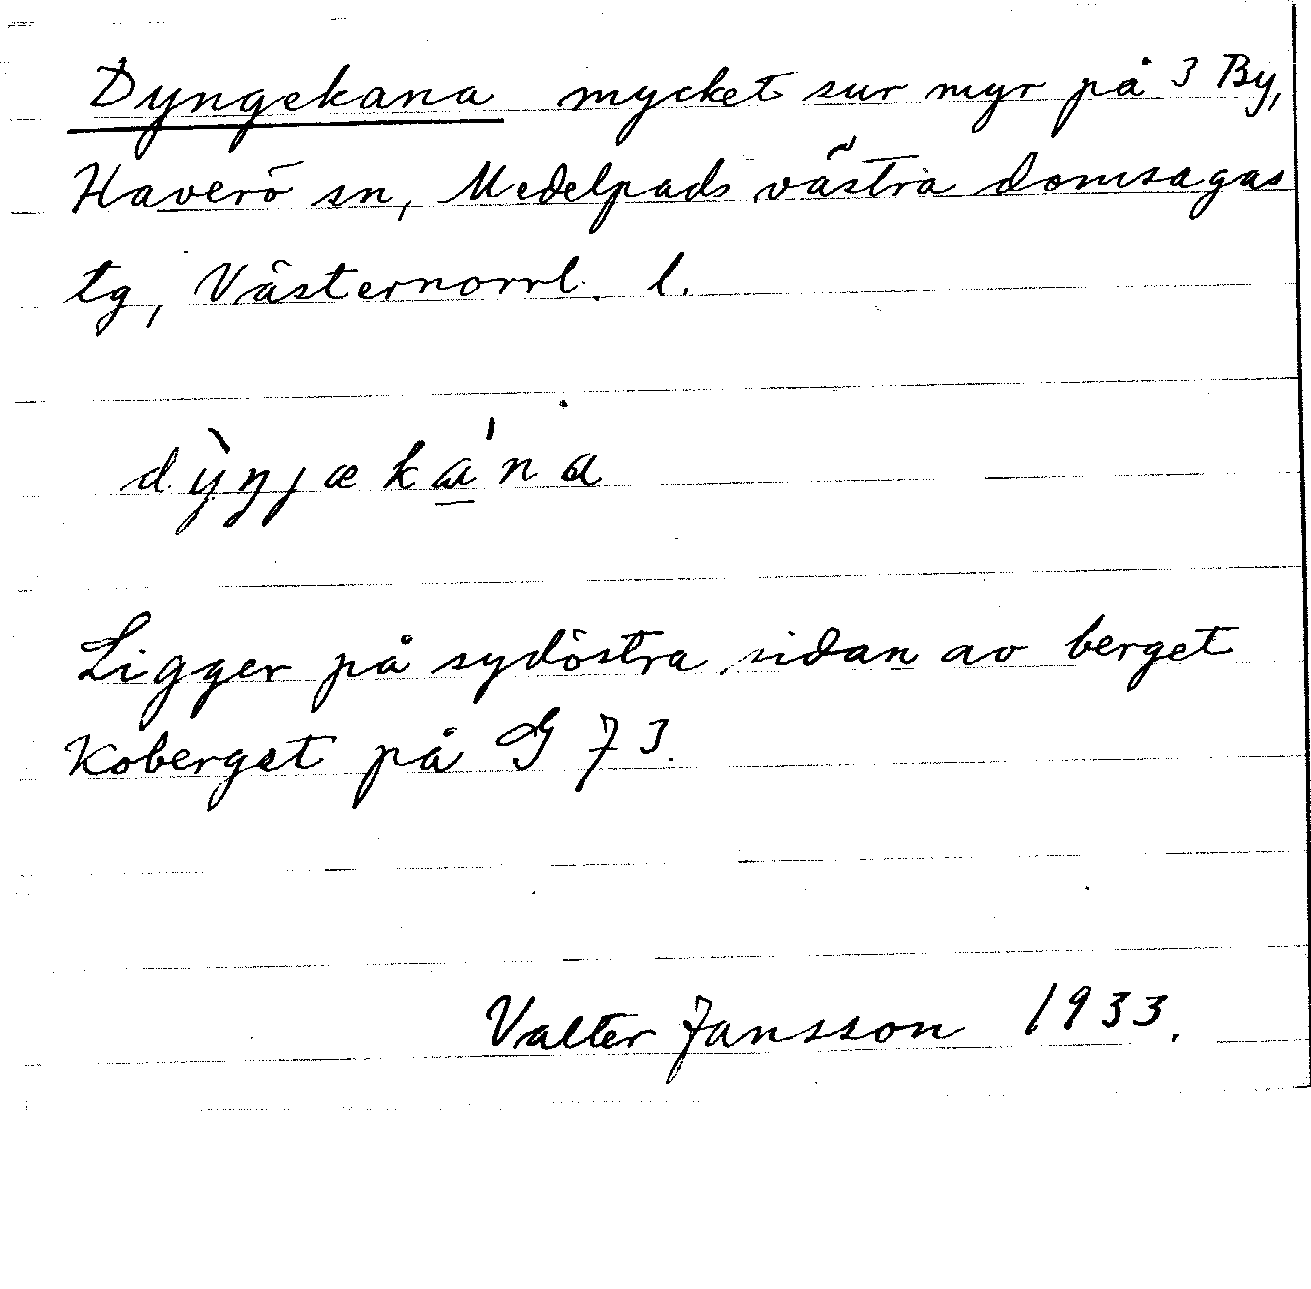 Dyngekana mycket sur myr på 3 By,
Haverö sn, Medelpads västra domsagas
tg, Västernorrl. l.
dỳŋȷæka̲ˈna
Ligger på sydöstra sidan av berget
Koberget på G 73.
Valter Jansson 1933.